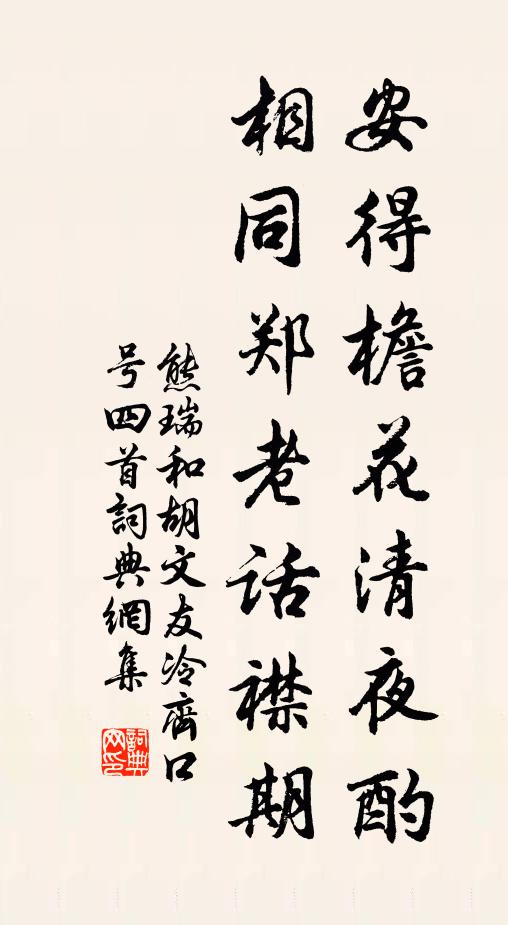 安得檐花清夜酌
相同郑老话襟期
熊瑞和胡文友冷斋口
号四首詞典網集
詞典网印